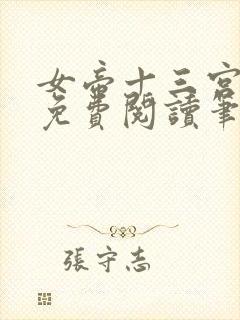 女帝十三宮
免費閱讀筆
張守志